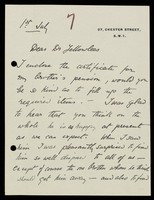 1st July
7
27, CHESTER STREET,
S.W.1.
Dear Dr Fellowes
I enclose the certificate for
my brother's pension, would you
be so kind as to fill up the
required items. — I was glad
to hear that you think on the
whole he is happy, at present
as we can expect. When I saw
him I was pleasantly surprised to find
him so well disposed to all of us —
except of course to our brother whom he thinks
should get him away — and also to find